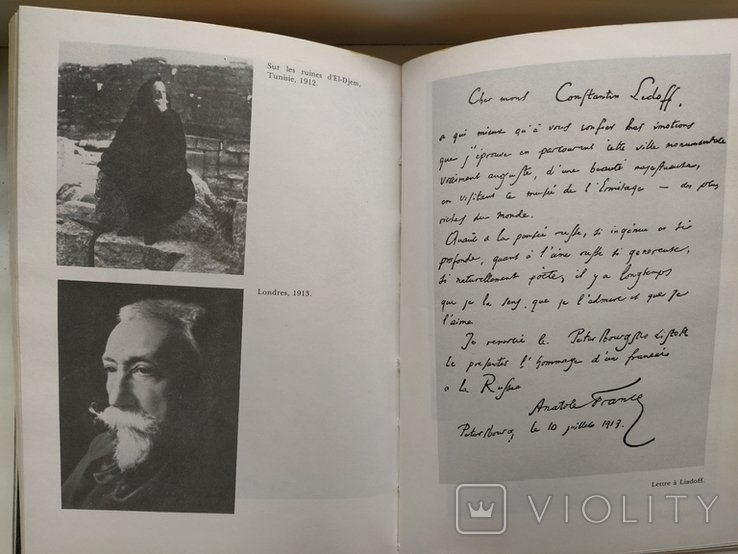 Sur les ruines d'El-Djem,
Tunisie, 1912.
Londres, 1913.
Cher mons Constantin Ledoff,
a qui mieux qu'à vous confier les émotions
que j'éprouve en parcourant cette ville monumentale
vraiment auguste, d'une beauté majestueuse,
en visitant le musée de l'Ermitage — des plus
riches du monde.
Quant a la pensée russe, si ingénue et si
profonde, quant à l'âme russe si genereuse,
si naturellement poète, il y a longtemps
que je la sens, que je l'admire et que je
l'aime
Je remercie le Petersbourgsko Listok
de presenter l'hommage d'un francais
a la Russie
Anatole France
Petersbourg, le 10 juillet 1913.
Lettre à Liadoff.
VIOLITY